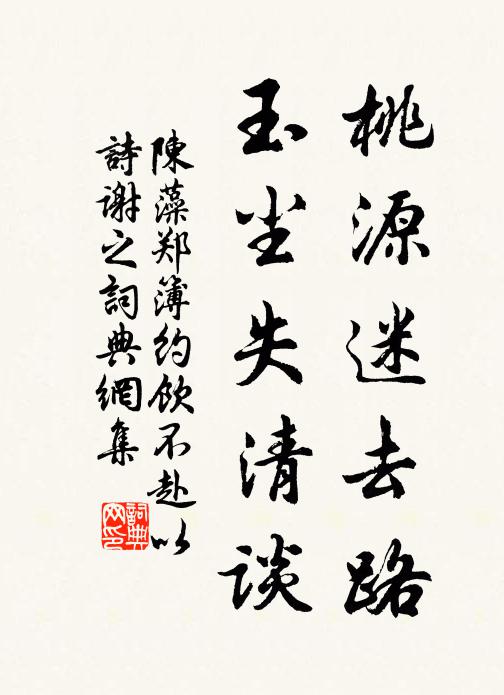 桃源迷去路
玉尘失清谈
陳藻郑簿约飲不赴以
詩谢之詞典網集
詞典网印